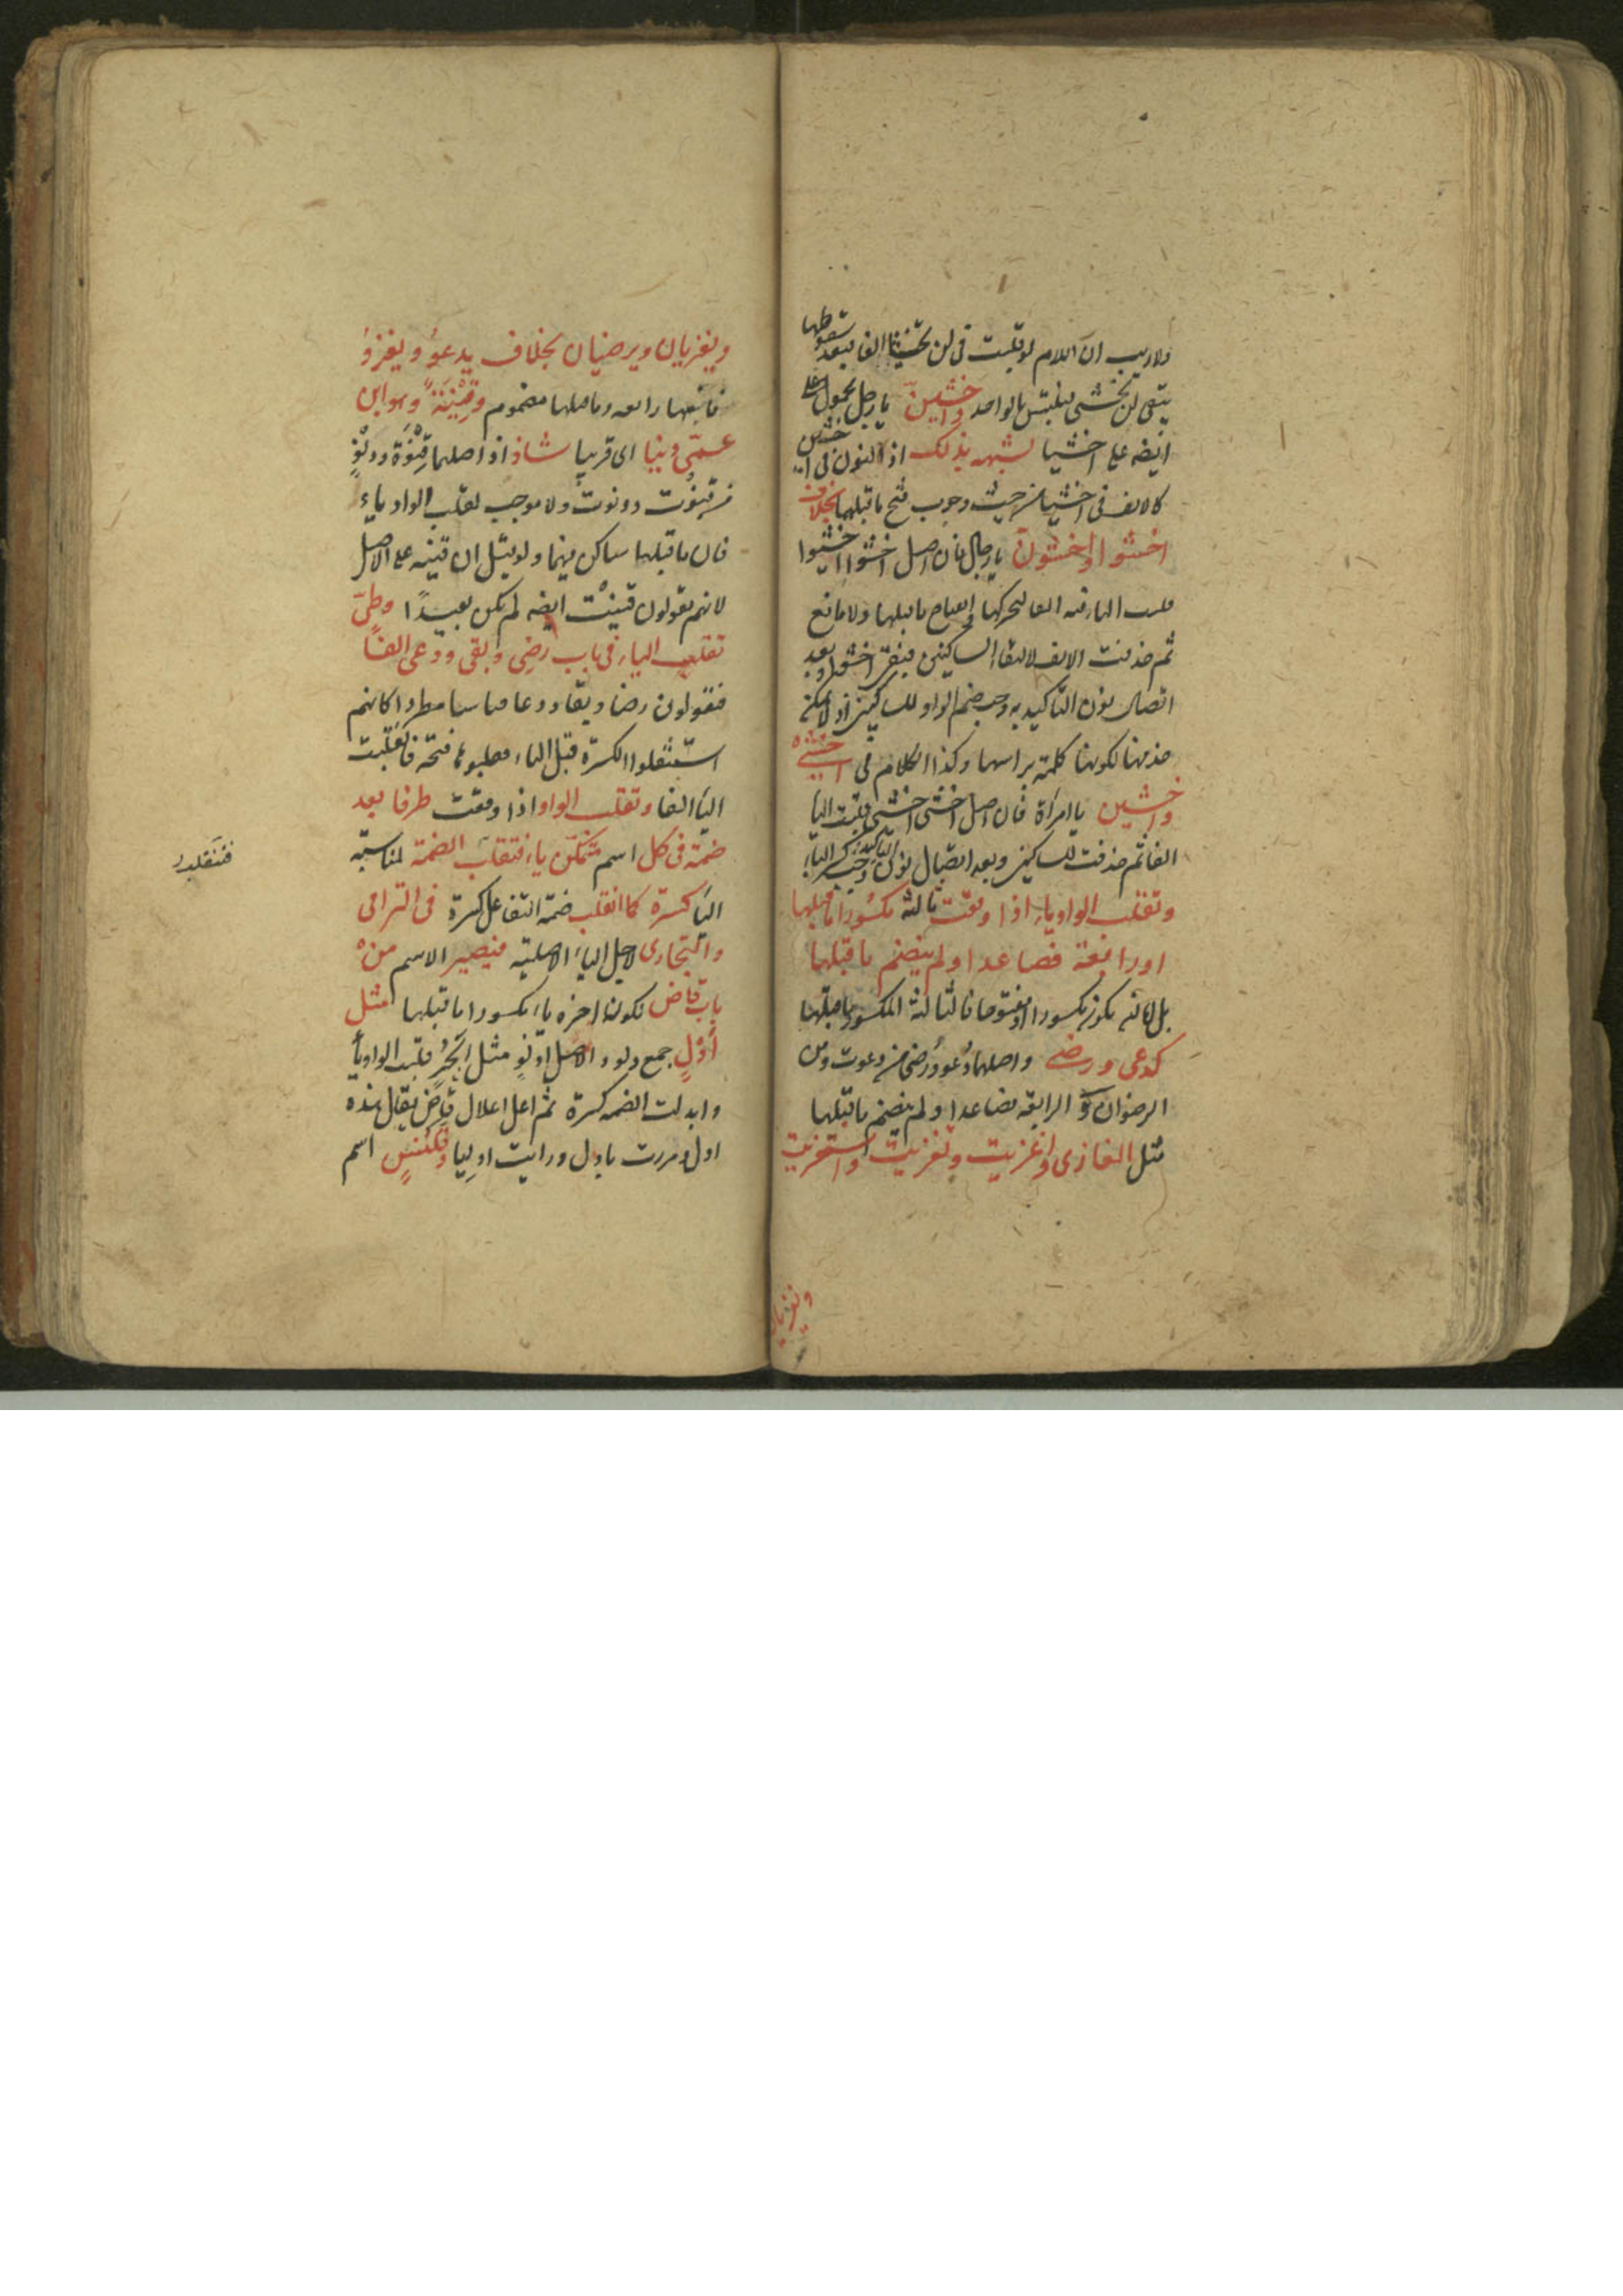 ولا ريب ان اللام لو قلبت فى لن تخشيا الفا فبعد سقوطها
يبقى لن تخشى فيلتبس بالواحد واخشين يا رجل محمول على
ايضه على اخشيا لشبهه بذلك اذ النون فى اخشين
كالالف فى اخشيا من حيث وجوب فتح ما قبلها بخلاف
اخشوا واخشون يا رجال فان اصل اخشوا اخشيوا
قلبت الياء فيه الفا لتحركها وانفتاح ما قبلها ولا مانع
ثم حذفت الالف لالتقاء الساكنين فبقى اخشوا وبعد
اتصال نون التاكيد به وجب ضم الواو للساكنين اذ لا يمكن
حذفها لكونها كلمة براسها وكذا الكلام فى اخشى
واخشين يا امرأة فان اصل اخشى اخشيى قلبت اليا
الفا ثم حذفت للساكنين وبعد اتصال نون التاكيد وجب كسر الياء
وتقلب الواو ياء اذا وقعت ثالثة مكسورا ما قبلها
او رابعة فصاعدا ولم ينضم ما قبلها
بل كانه يكون مكسورا او مفتوحا فالثالثة المكسور ما قبلها
كدعى ورضى واصلهما دعو ورضو من دعوت ومن
الرضوان و الرابعة فصاعدا ولم ينضم ما قبلها
مثل الغازى واغزيت وتغزيت واستغزيت
ويغزيان
ويغزيان ويرضيان بخلاف يدعو ويغزو
فانها رابعه وما قبلها مضموم وقنية وهو ابن
عمى دنيا اى قريبا شاذ اذ اصلهما قنوة ودنو
من قنوت ودنوت ولا موجب لقلب الواو ياء
فان ما قبلها ساكن فيهما ولو قيل ان قنيه على الاصل
لانهم يقولون قنيت ايضه لم يكن بعيدا وطى
تقلب الياء فى باب رضى وبقى ودعى الفا
فيقولون رضا وبقا ودعا قياسا مطردا كانهم
استثقلوا الكسرة قبل الياء فقلبوها فتحه فانقلبت
اليا الفا وتقلب الواو اذا وقعت طرفا بعد
ضمة فى كل اسم متمكن ياء فتقلب الضمة لمناسبة
اليا كسرة كما انقلب ضمة التفاعل كسرة فى الترامى
والتجارى لاجل الياء الاصلية فيصير الاسم من
باب قاض لكون اخره ياء مكسورا ما قبلها مثل
أدل جمع دلو والاصل ادلو مثل ابحر قلبت الواو يأ
وابدلت الضمه كسرة ثم اعل اعلال قاض يقال هذه
ادل ومررت بادل ورايت ادليا وقلنس اسم
فتنقلب